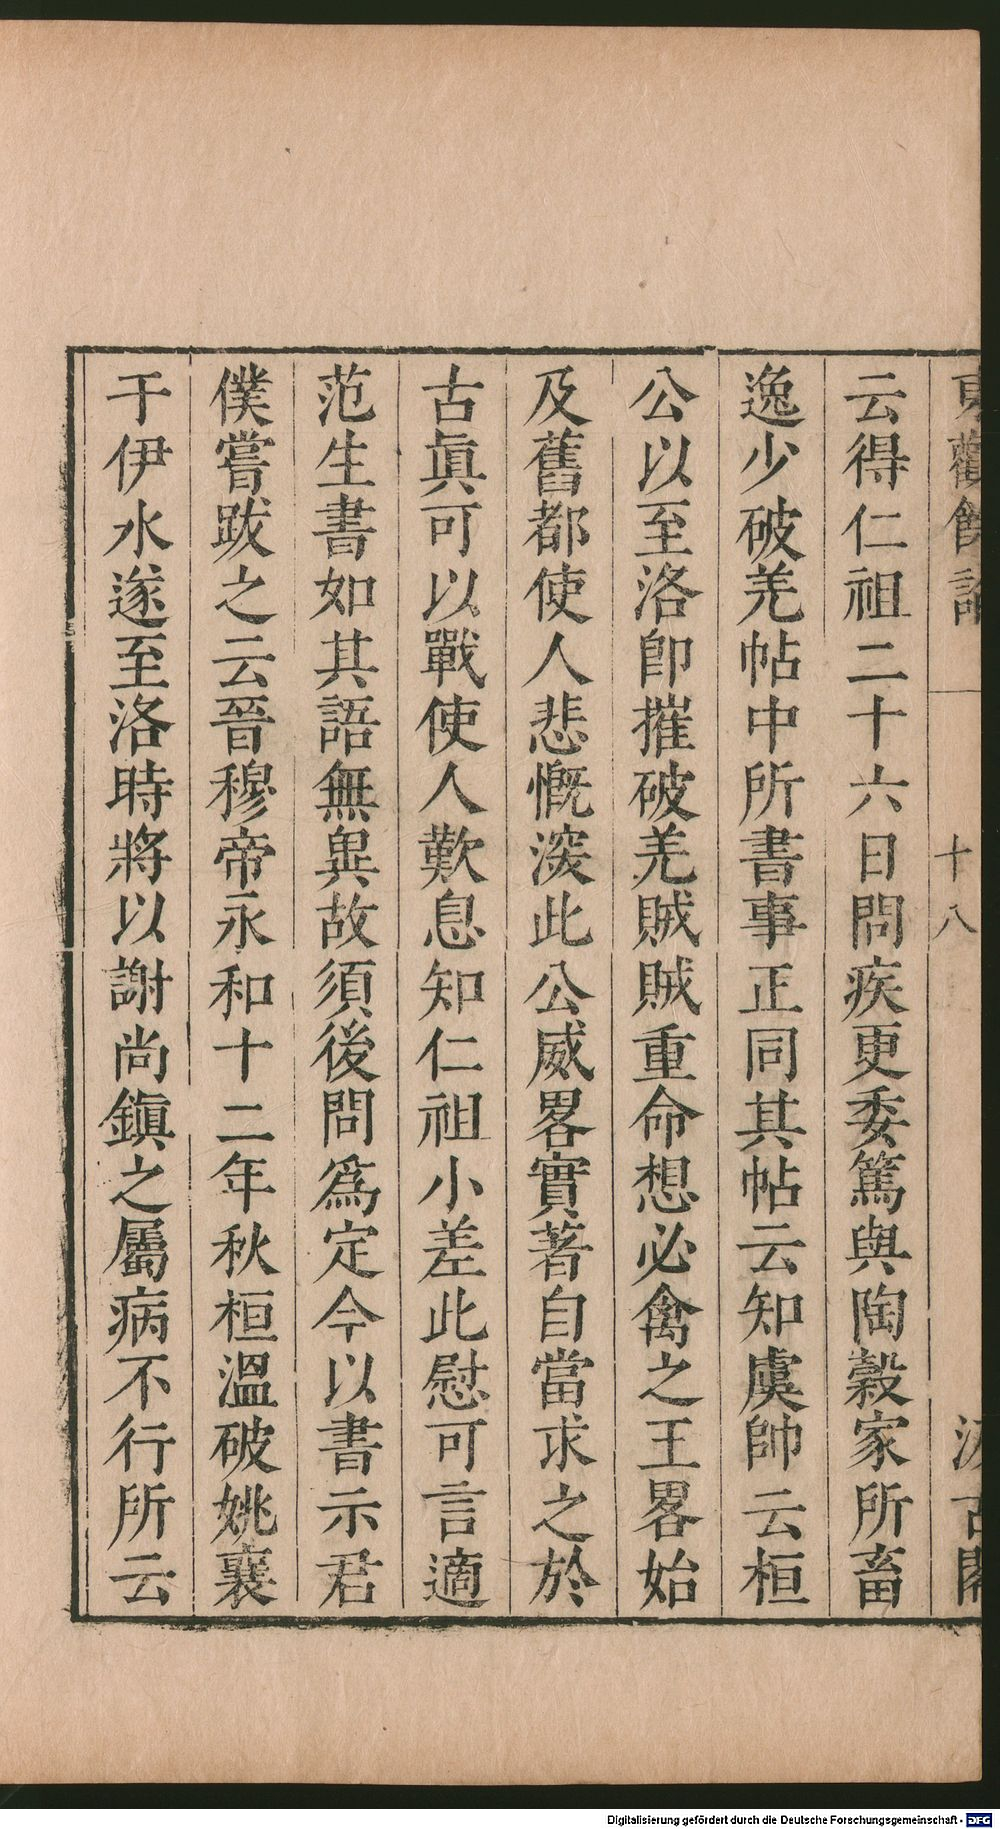 東觀餘論 十八 汲古閣
云得仁祖二十六日問疾更委篤與陶穀家所畜
逸少破羌帖中所書事正同其帖云知虞帥云桓
公以至洛卽摧破羌賊賊重命想必禽之王畧始
及舊都使人悲慨湥此公威畧實著自當求之於
古眞可以戰使人歎息知仁祖小差此慰可言適
范生書如其語無異故須後問爲定今以書示君
僕嘗跋之云晉穆帝永和十二年秋桓溫破姚襄
于伊水遂至洛時將以謝尚鎮之屬病不行所云
Digitalisierung gefördert durch die Deutsche Forschungsgemeinschaft - DFG